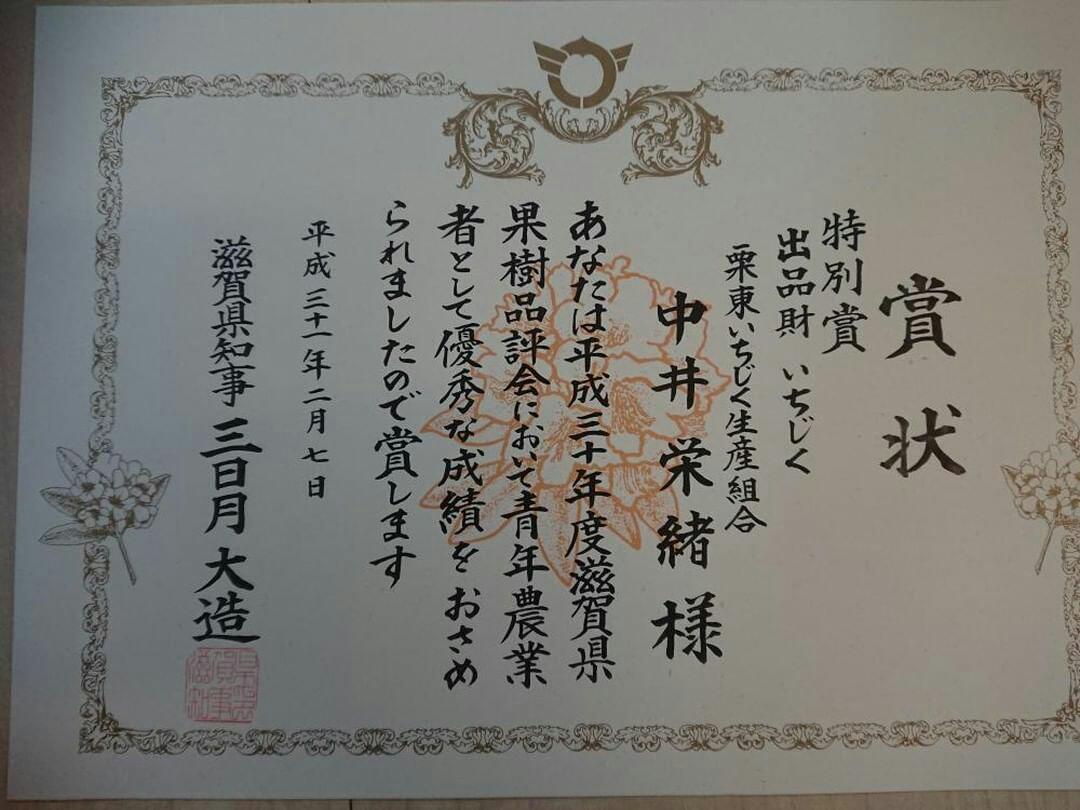 賞状
特別賞
出品財 いちじく
栗東いちじく生産組合
中井栄緒様
あなたは平成三十年度滋賀県
果樹品評会において青年農業
者として優秀な成績をおさめ
られましたので賞します
平成三十一年二月七日
滋賀県知事 三日月大造
滋賀県知事